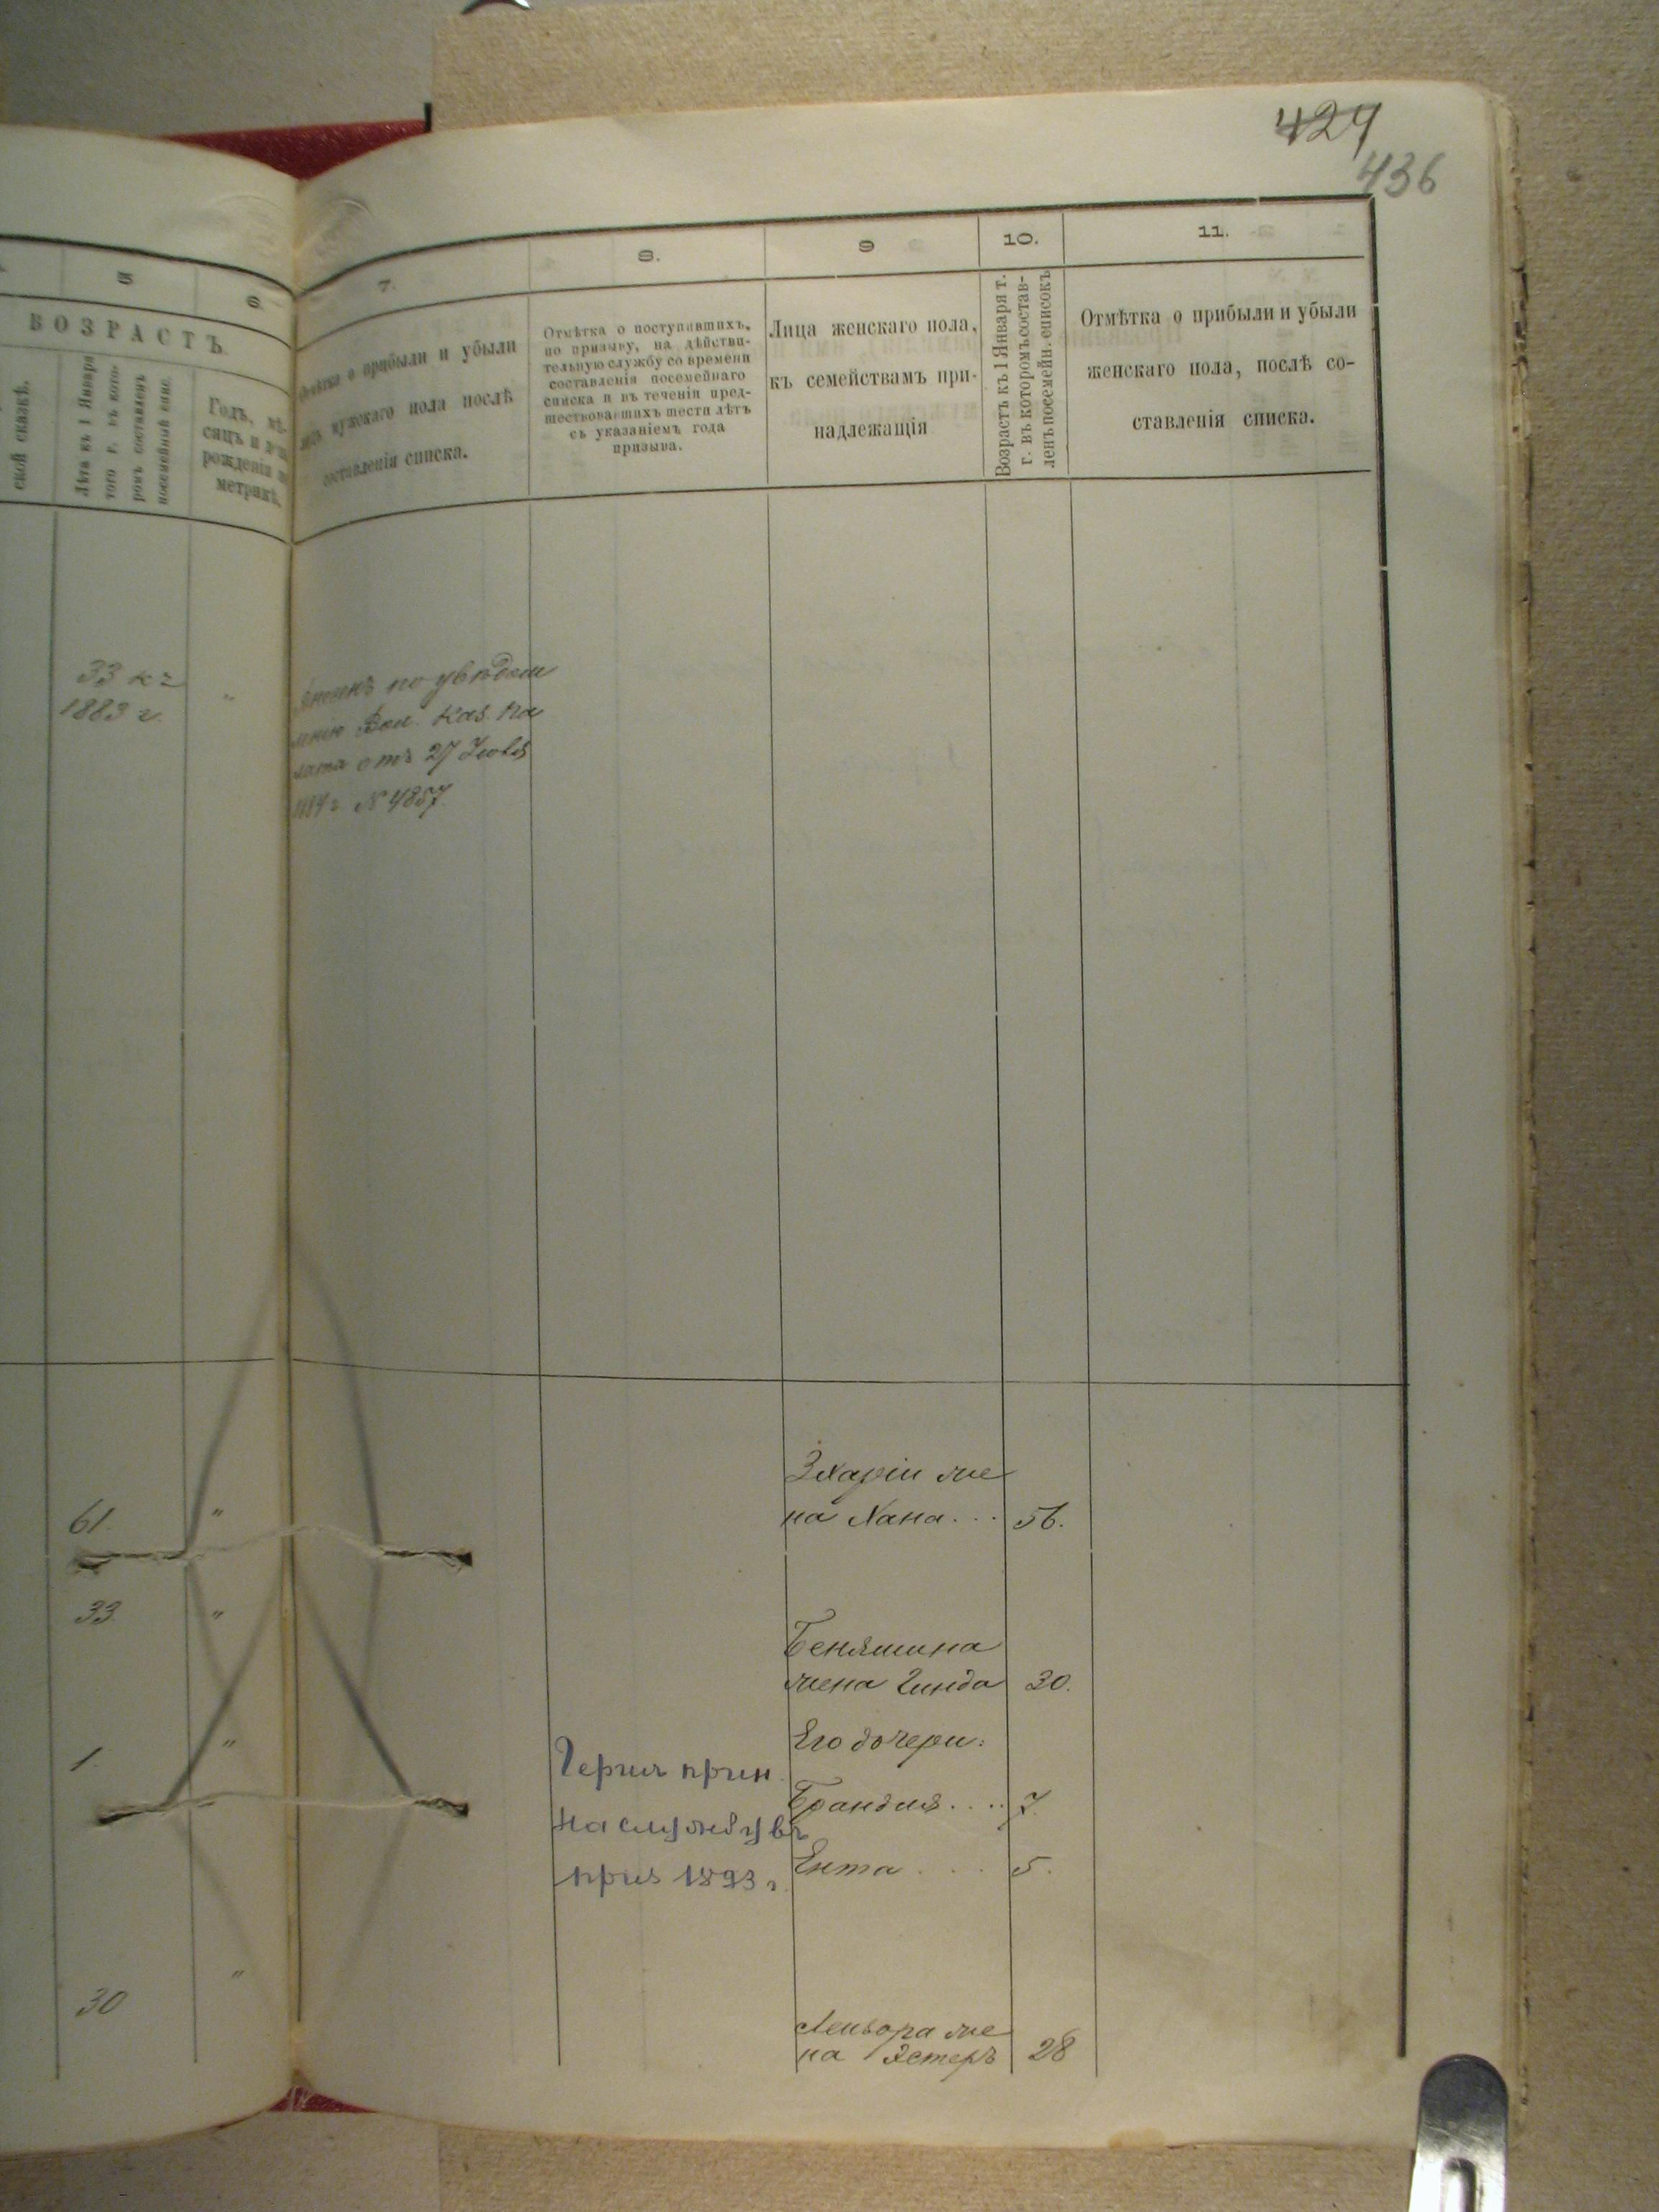 429
436
5
6
7.
8.
9
10.
11.
ВОЗРАСТЪ
ской сказкѣ.
Лѣта къ 1 Января
того г. въ кото-
ромъ составленъ
посемейный спис.
Годъ, мѣ-
сяцъ и день
рожденія по
метрикѣ.
Отмѣтка о прибыли и убыли
лицъ мужскаго пола послѣ
составленія списка.
Отмѣтка о поступившихъ,
по призыву, на дѣйстви-
тельную службу со времени
составленія посемейнаго
списка и въ теченіи пред-
шествовавшихъ шести лѣтъ
съ указаніемъ года
призыва.
Лица женскаго пола,
къ семействамъ при-
надлежащія
Возрастъ къ 1 Января т.
г. въ которомъ состав-
ленъ посемейн. списокъ
Отмѣтка о прибыли и убыли
женскаго пола, послѣ со-
ставленія списка.
33 къ
1883 г.
"
по увѣдом
Каз. Па
отъ 27
№ 4857
61
"
33
"
1
"
30
"
Гершъ прин
на службу въ
приз 1893 г
Зхаріи же
на Хана... 56.
Беньямина
жена Гинда 30.
Его дочери:
Брандля.... 7
Ента... 5.
Лейзора же
на Эстеръ 28